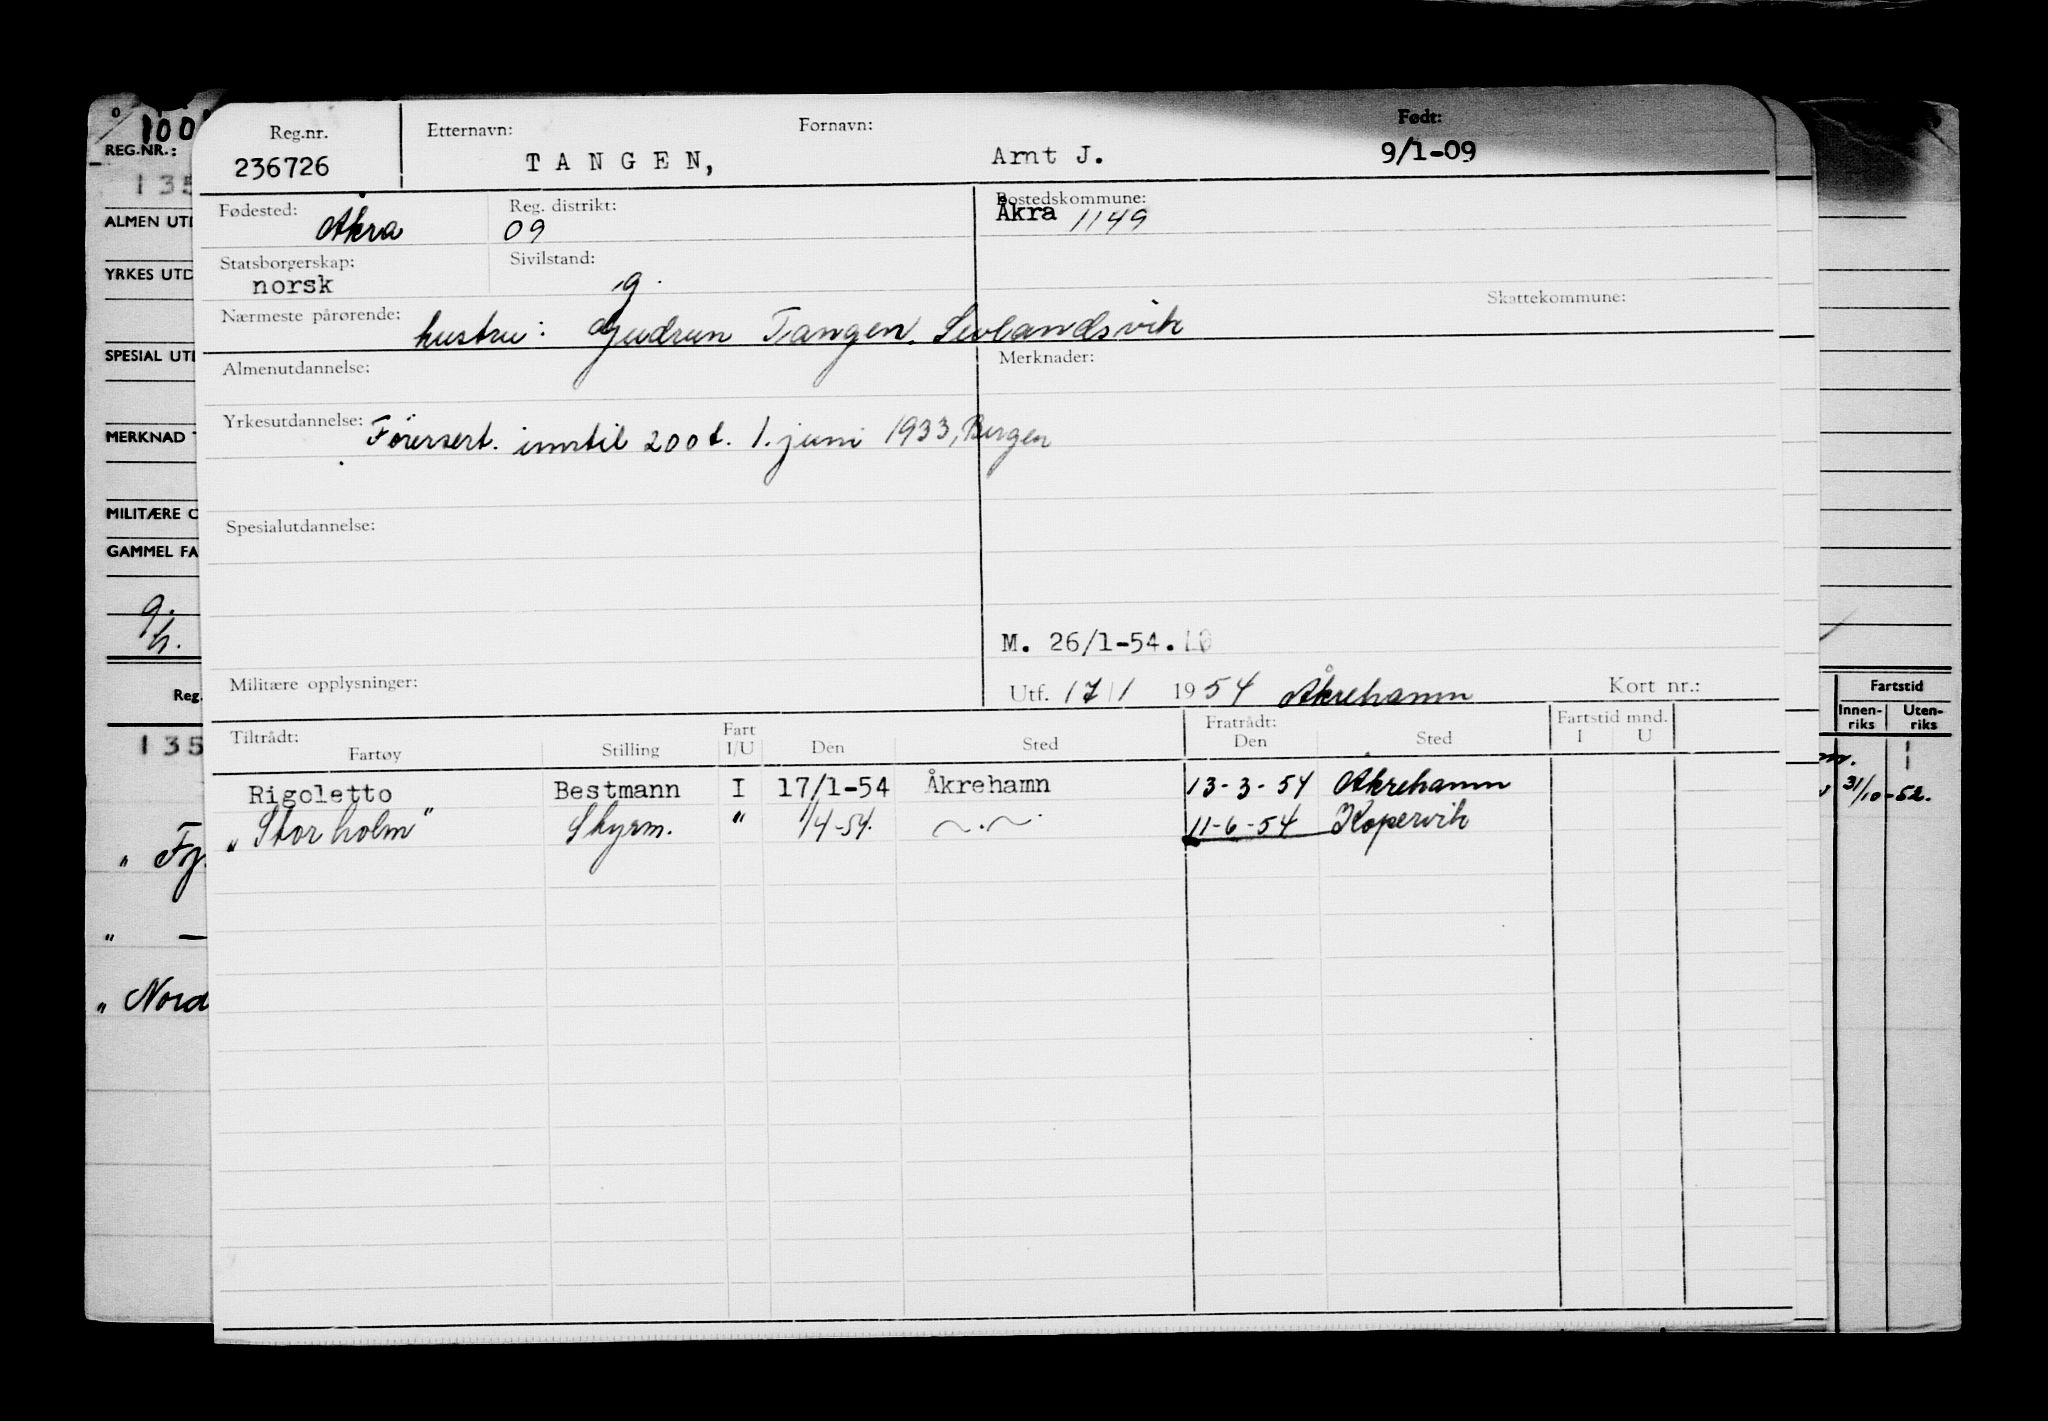 1001
REG.NR.:
135
ALMEN UTD
YRKES UTD
SPESIAL UTD
MERKNAD
MILITÆRE O
GAMMEL FA
g.
Reg.
135
" Fj
" —
" Nord
Reg.nr. Etternavn: Fornavn: Født:
236726 TANGEN, Arnt J. 9/1-09
Fødested: Åkra Reg. distrikt: 09 Bostedskommune: Åkra 1149
Statsborgerskap: norsk Sivilstand: g. Skattekommune:
Nærmeste pårørende: hustru: Gudrun Tangen. Sevlandsvik
Almenutdannelse: Merknader:
Yrkesutdannelse: Førersert. inntil 200t. 1. juni 1933, Bergen
Spesialutdannelse:
M. 26/1-54.
Militære opplysninger: Utf. 17/1 1954 Åkrehamn Kort nr.:
Tiltrådt: Fart Fratrådt: Fartstid mnd.
Fartøy Stilling I/U Den Sted Den Sted I U
Rigoletto Bestmann I 17/1-54 Åkrehamn 13-3-54 Åkrehamn
"Storholm" Styrm. " 1/4-54. ~.~ 11-6-54 Kopervik
Fartstid
Innen-riks Uten-riks
31/10-52.